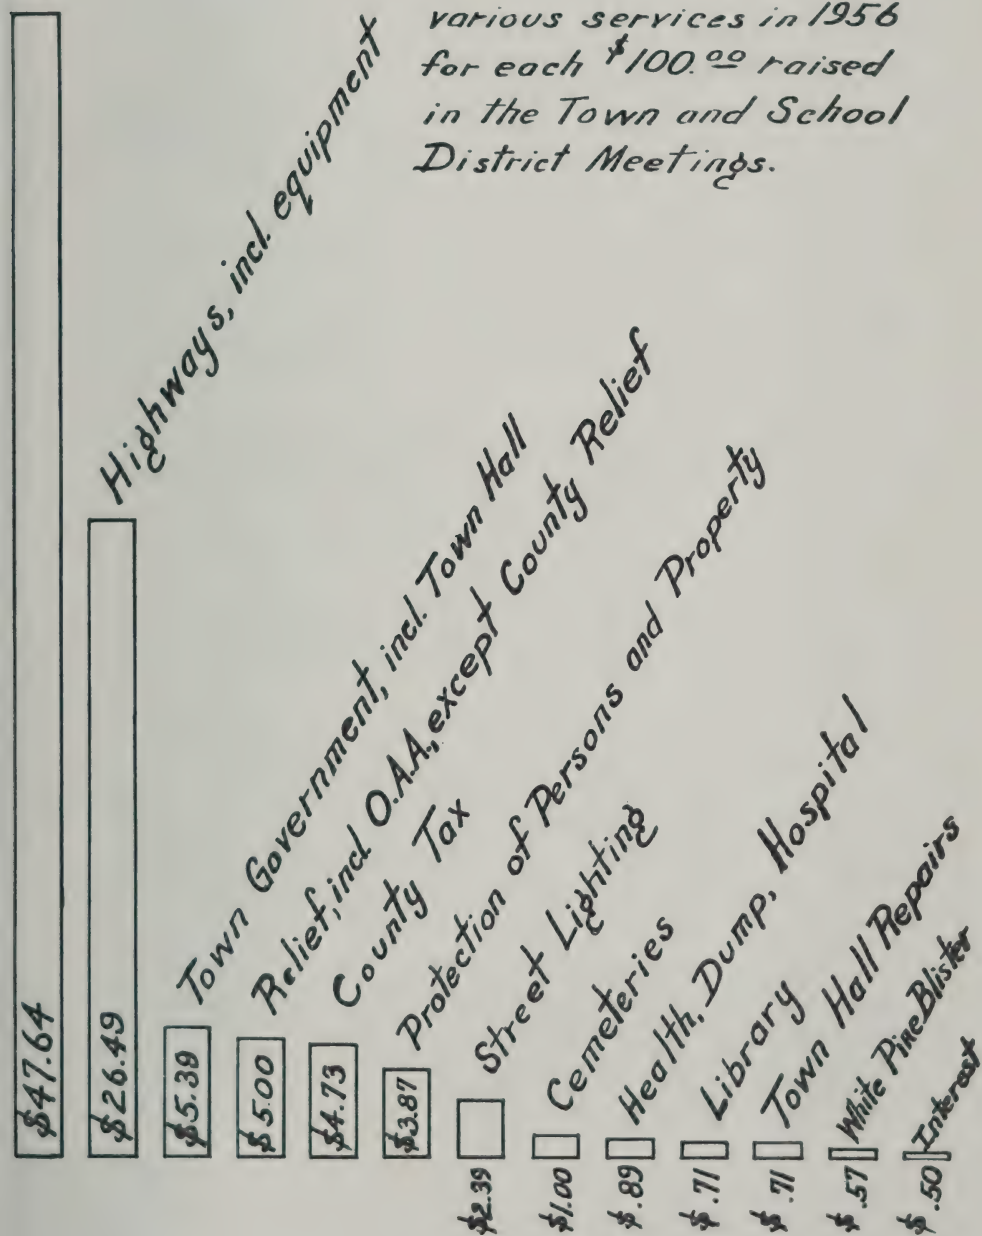 various services in 1956
for each $100.00 raised
in the Town and School
District Meetings.
$47.64
Highways, incl. equipment
$26.49
Town Government, incl. Town Hall
$5.39
Relief, incl. O.A.A., except County Relief
$5.00
County Tax
$4.73
Protection of Persons and Property
$3.87
Street Lighting
$2.39
Cemeteries
$1.00
Health, Dump, Hospital
$.89
Library
$.71
Town Hall Repairs
$.71
White Pine Blister
$.57
Interest
$.50